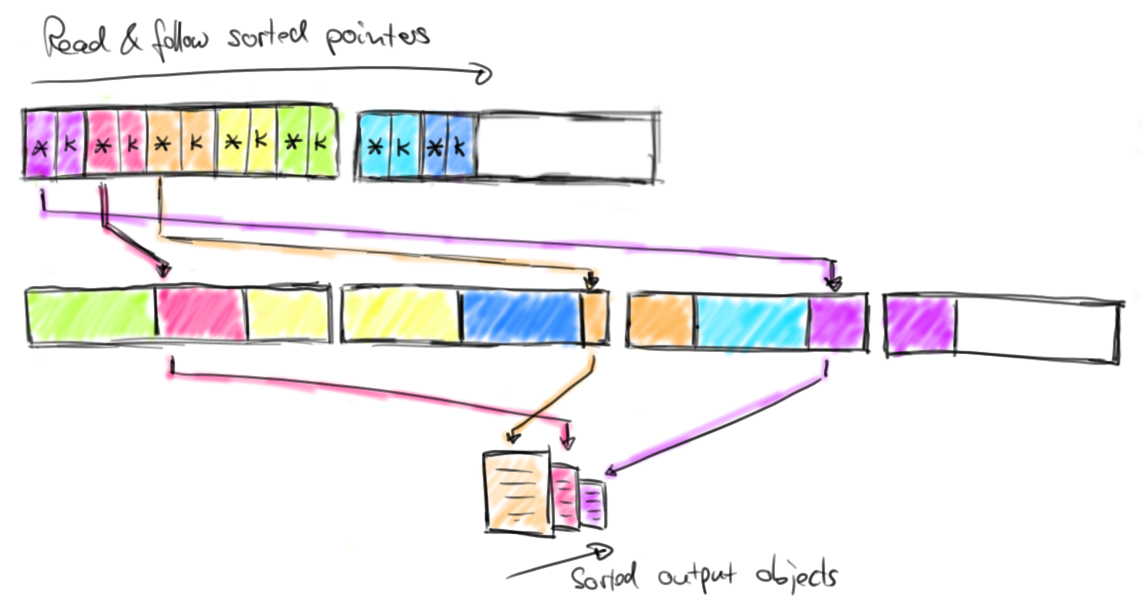 Read & follow sorted pointers
* k * k * k * k * k * k * k
Sorted output objects